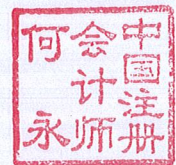 中国注册
会计师
何永